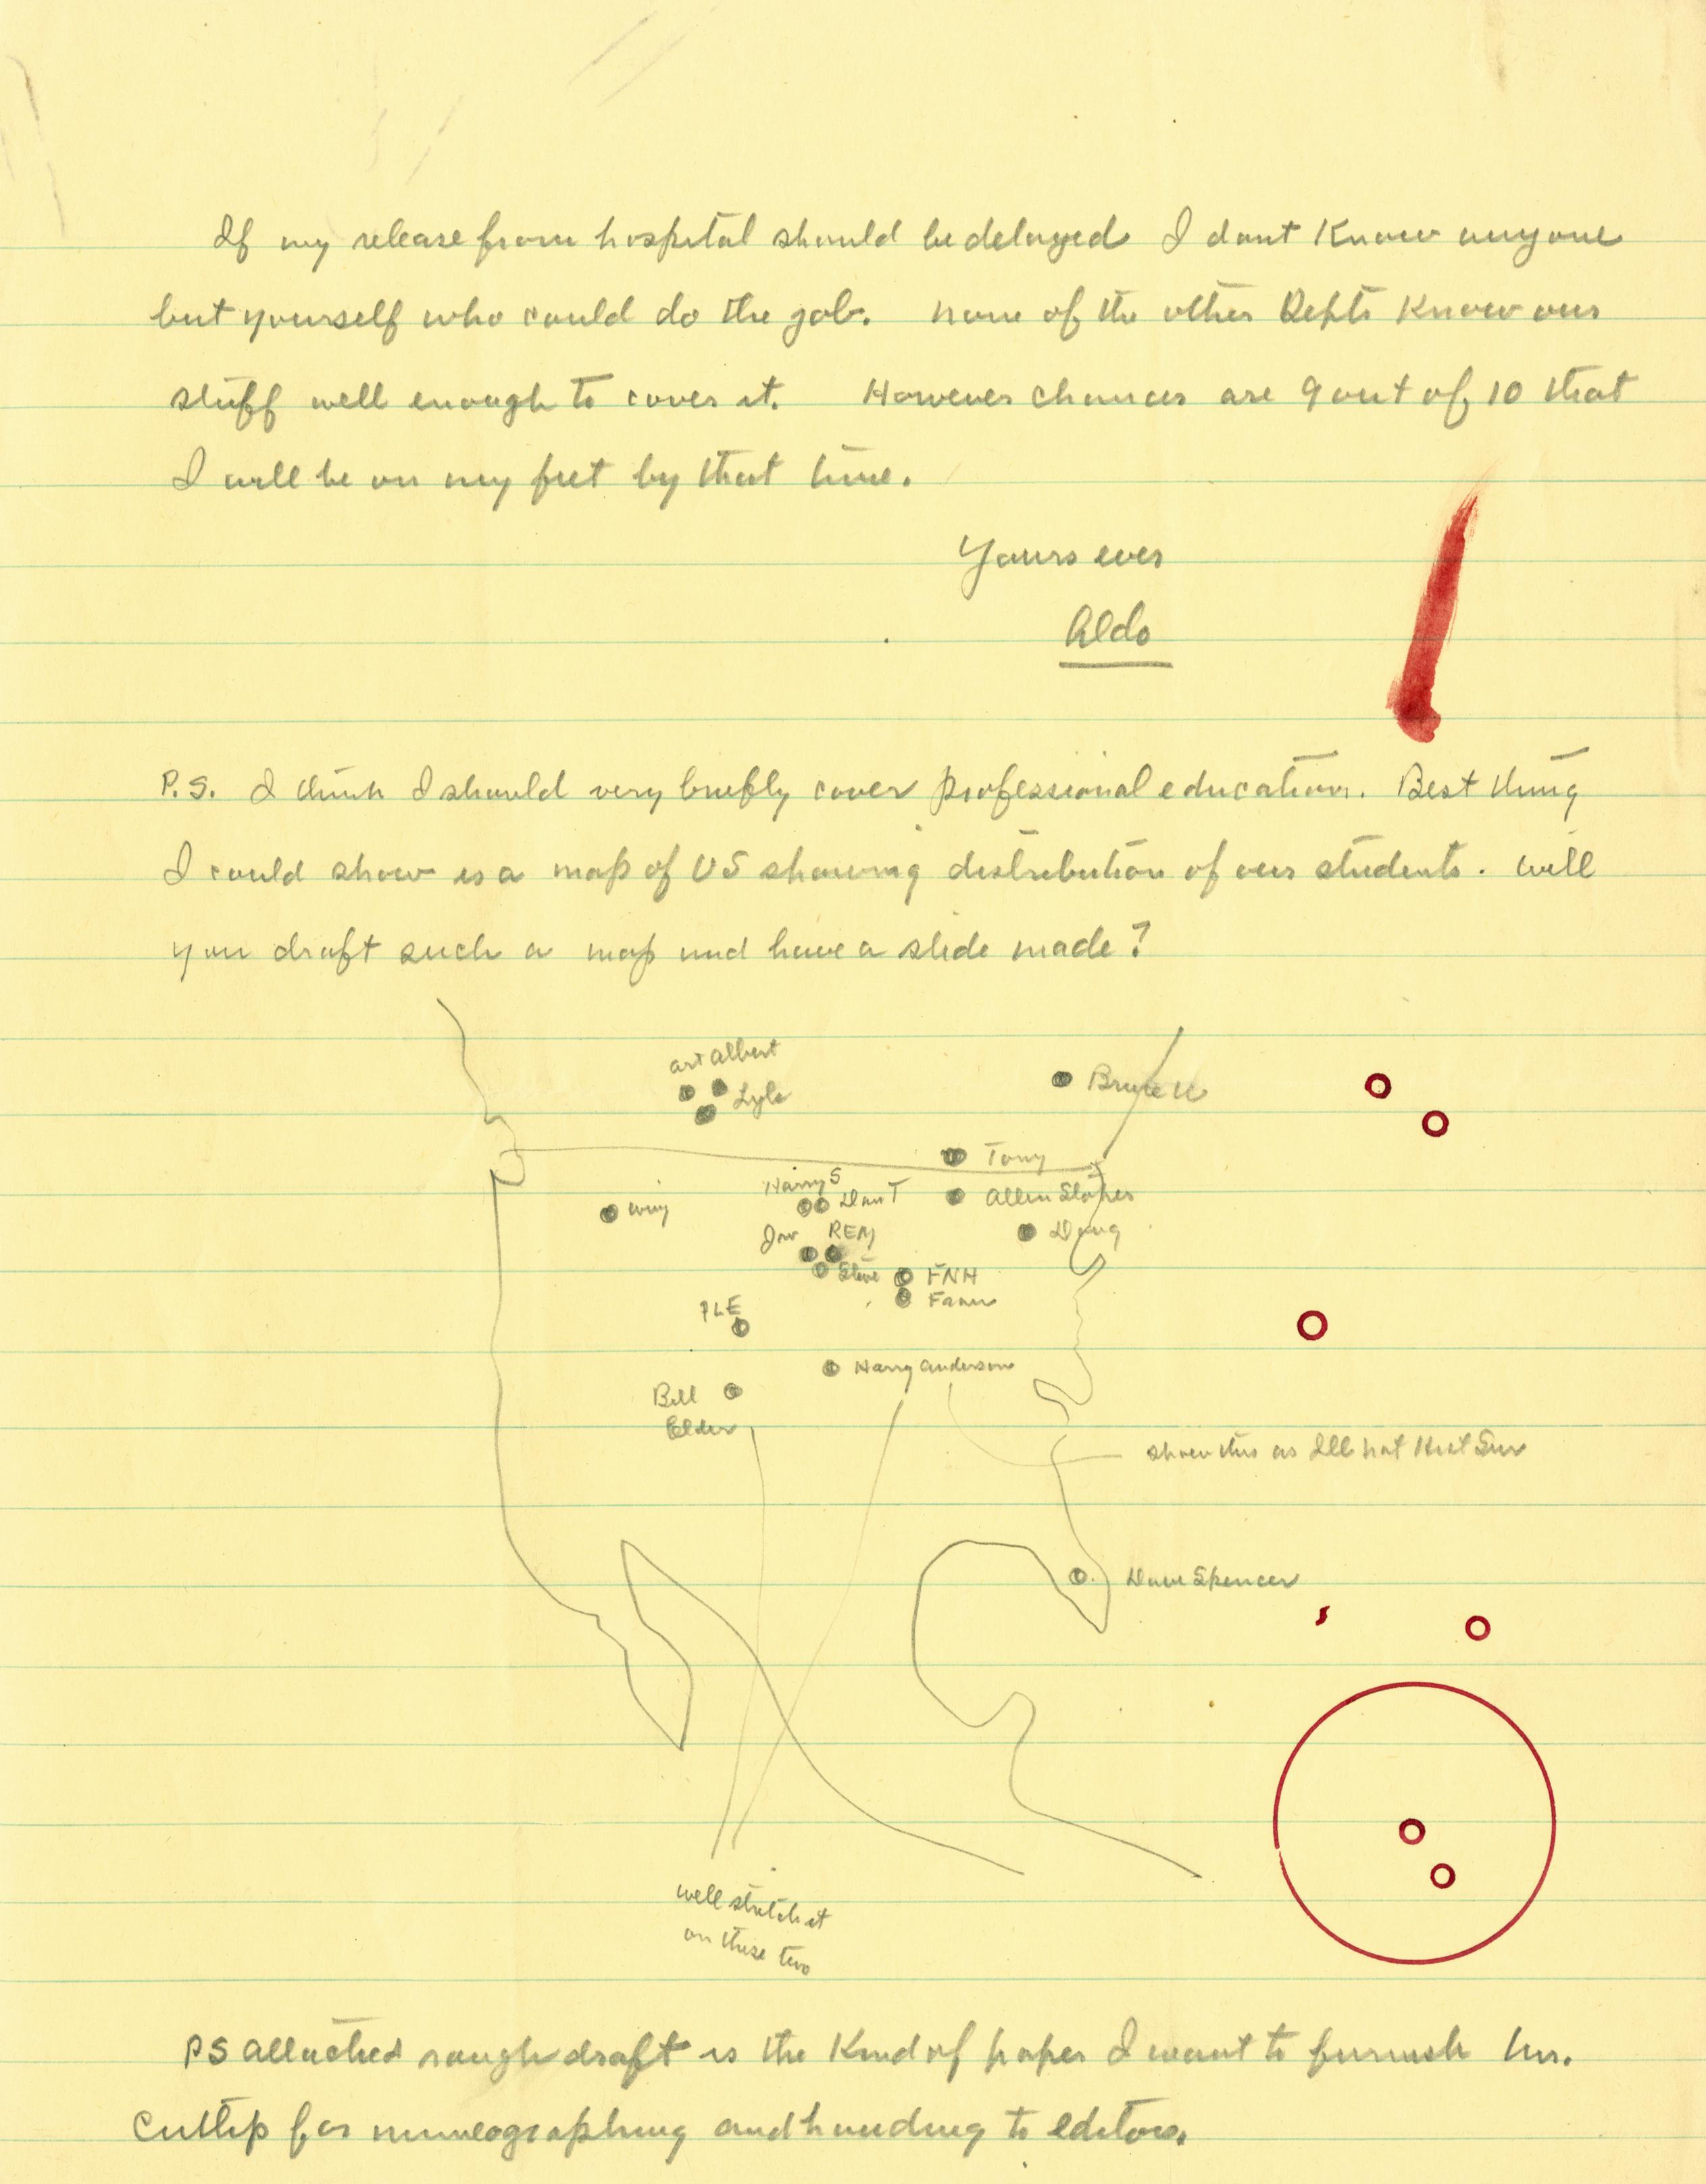 If my release from hospital should be delayed I dont Know anyone
but yourself who could do the job. None of the other Depts Know our
stuff well enough to cover it. However chances are 9 out of 10 that
I will be on my feet by that time.
Yours ever
Aldo
P.S. I think I should very briefly cover professional education. Best thing
I could show is a map of US showing distribution of our students. Will
you draft such a map and have a slide made?
Art Albert
Lyle
Bruce
Tony
Harry S
Dan T
Allen Slopes
Doug
REM
Steve
FNH
PLE
Harry Anderson
Bill
Elder
show this as Ill but
Dave Spencer
well stretch it
on these two
PS Attached rough draft is the Kind of paper I want to furnish Mr.
Cutlip for mimeographing and handing to editors.